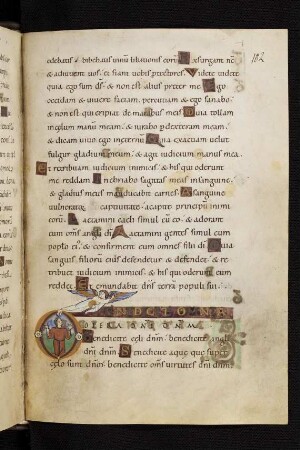 102
edebatis & bibebatis uinum libationis eorum Surgant nc
& adiuuent uos. et siam uobis protectores. Videte videte
quia ego sum ds̄ & non est alius preter me Ego
occidam & uiuere faciam. percutiam & ego sanabo
& non est qui eripiat de manibus meis Quia tollam
in celum manū meam. & iurabo p dexteram meam.
& dicam uiuo ego in eternū Quia exacuam uelut
fulgur gladium meum. & aget iudicium manus mea
Et retribuam iudicium inimicis. & his qui oderunt
me reddam Inebriabo sagittas meas in sanguine
& gladius meus manducabit carnes A sanguine
uulneratorū captiuitate. a capite principū inimi
corum Laetamini caeli simul cū eo. & adorent
eum om̄s angeli di Laetamini gentes simul cum
populo ei'. & confirment eum omnes filii di Quia
sanguis filiorū eius defenditur & defendet. & re
tribuet iudicium inimicis. & his qui oderunt eum
reddet Et emundabit dn̄s terrā populi sui
OPERA DNI DNM
Benedicite celi dn̄m. benedicite angli
dn̄i dn̄m Benedicite aque que super
celos sunt dn̄m. benedicite om̄s uirtutes dn̄i dn̄m